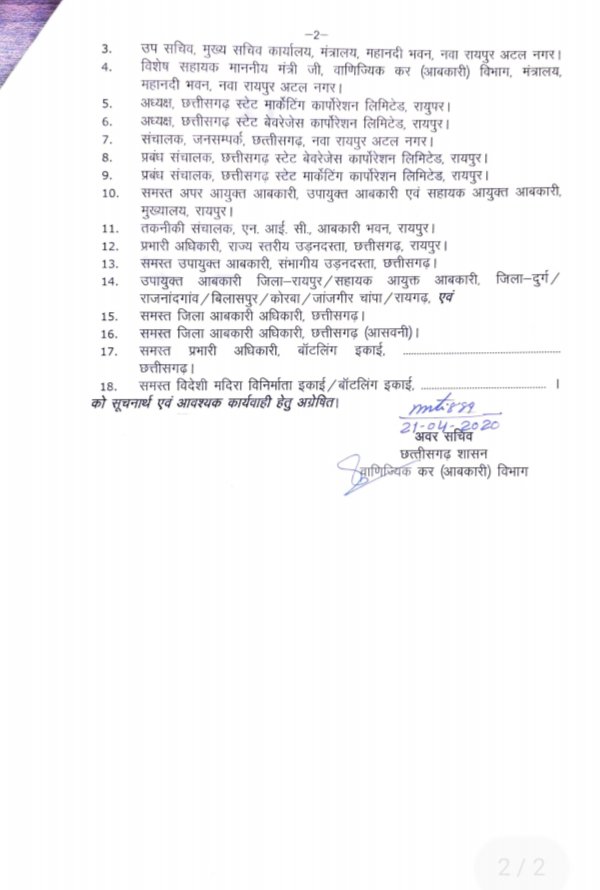 -2-
3. उप सचिव, मुख्य सचिव कार्यालय, मंत्रालय, महानदी भवन, नवा रायपुर अटल नगर।
4. विशेष सहायक माननीय मंत्री जी, वाणिज्यिक कर (आबकारी) विभाग, मंत्रालय,
महानदी भवन, नवा रायपुर अटल नगर।
5. अध्यक्ष, छत्तीसगढ़ स्टेट मार्केटिंग कार्पोरेशन लिमिटेड, रायपुर।
6. अध्यक्ष, छत्तीसगढ़ स्टेट बेवरेजेस कार्पोरेशन लिमिटेड, रायपुर।
7. संचालक, जनसम्पर्क, छत्तीसगढ़, नवा रायपुर अटल नगर।
8. प्रबंध संचालक, छत्तीसगढ़ स्टेट बेवरेजेस कार्पोरेशन लिमिटेड, रायपुर।
9. प्रबंध संचालक, छत्तीसगढ़ स्टेट मार्केटिंग कार्पोरेशन लिमिटेड, रायपुर।
10. समस्त अपर आयुक्त आबकारी, उपायुक्त आबकारी एवं सहायक आयुक्त आबकारी,
मुख्यालय, रायपुर।
11. तकनीकी संचालक, एन. आई. सी., आबकारी भवन, रायपुर।
12. प्रभारी अधिकारी, राज्य स्तरीय उड़नदस्ता, छत्तीसगढ़, रायपुर।
13. समस्त उपायुक्त आबकारी, संभागीय उड़नदस्ता, छत्तीसगढ़।
14. उपायुक्त आबकारी जिला-रायपुर/सहायक आयुक्त आबकारी, जिला-दुर्ग/
राजनांदगांव/बिलासपुर/कोरबा/जांजगीर चांपा/रायगढ़, एवं
15. समस्त जिला आबकारी अधिकारी, छत्तीसगढ़।
16. समस्त जिला आबकारी अधिकारी, छत्तीसगढ़ (आसवनी)।
17. समस्त प्रभारी अधिकारी, बॉटलिंग इकाई, ..............................
छत्तीसगढ़।
18. समस्त विदेशी मदिरा विनिर्माता इकाई/बॉटलिंग इकाई, .............................. ।
को सूचनार्थ एवं आवश्यक कार्यवाही हेतु अग्रेषित।
21-04-2020
अवर सचिव
छत्तीसगढ़ शासन
वाणिज्यिक कर (आबकारी) विभाग
2/2